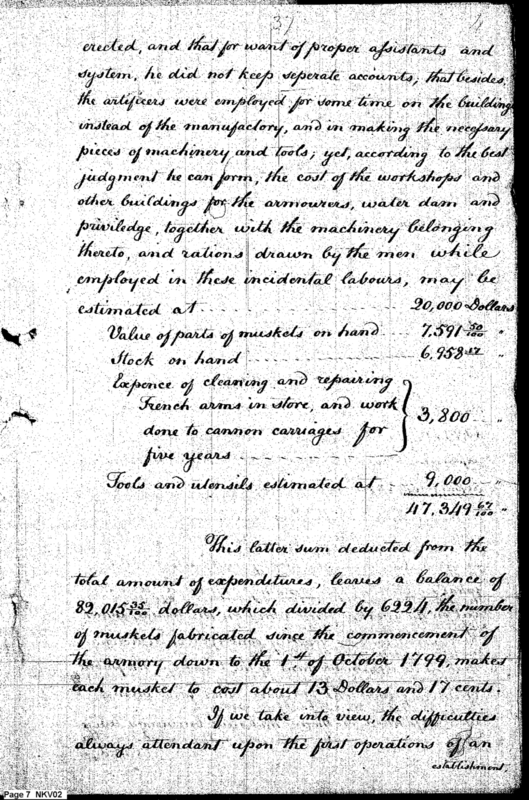 37 4
erected, and that for want of proper assistants and
system, he did not keep seperate accounts; that besides
the artificers were employed for some time on the buildings
instead of the manufactory, and in making the necessary
pieces of machinery and tools; yet, according to the best
judgment he can form, the cost of the workshops and
other buildings for the armourers, water dam and
priviledge, together with the machinery belonging
thereto, and rations drawn by the men while
employed in these incidental labours, may be
estimated at 20,000 Dollars
Value of parts of muskets on hand 7.591 50/100 "
Stock on hand 6,958.17 "
Expence of cleaning and repairing
French arms in store, and work
done to cannon carriages for } 3,800 "
five years
Tools and utensils estimated at 9,000 "
47,349 67/100 "
This latter sum deducted from the
total amount of expenditures, leaves a balance of
82,015 35/100 dollars, which divided by 6224, the number
of muskets fabricated since the commencement of
the armory down to the 1st of October 1799, makes
each musket to cost about 13 Dollars and 17 cents.
If we take into view, the difficulties
always attendant upon the first operations of an
establishment.
Page 7 NKV02